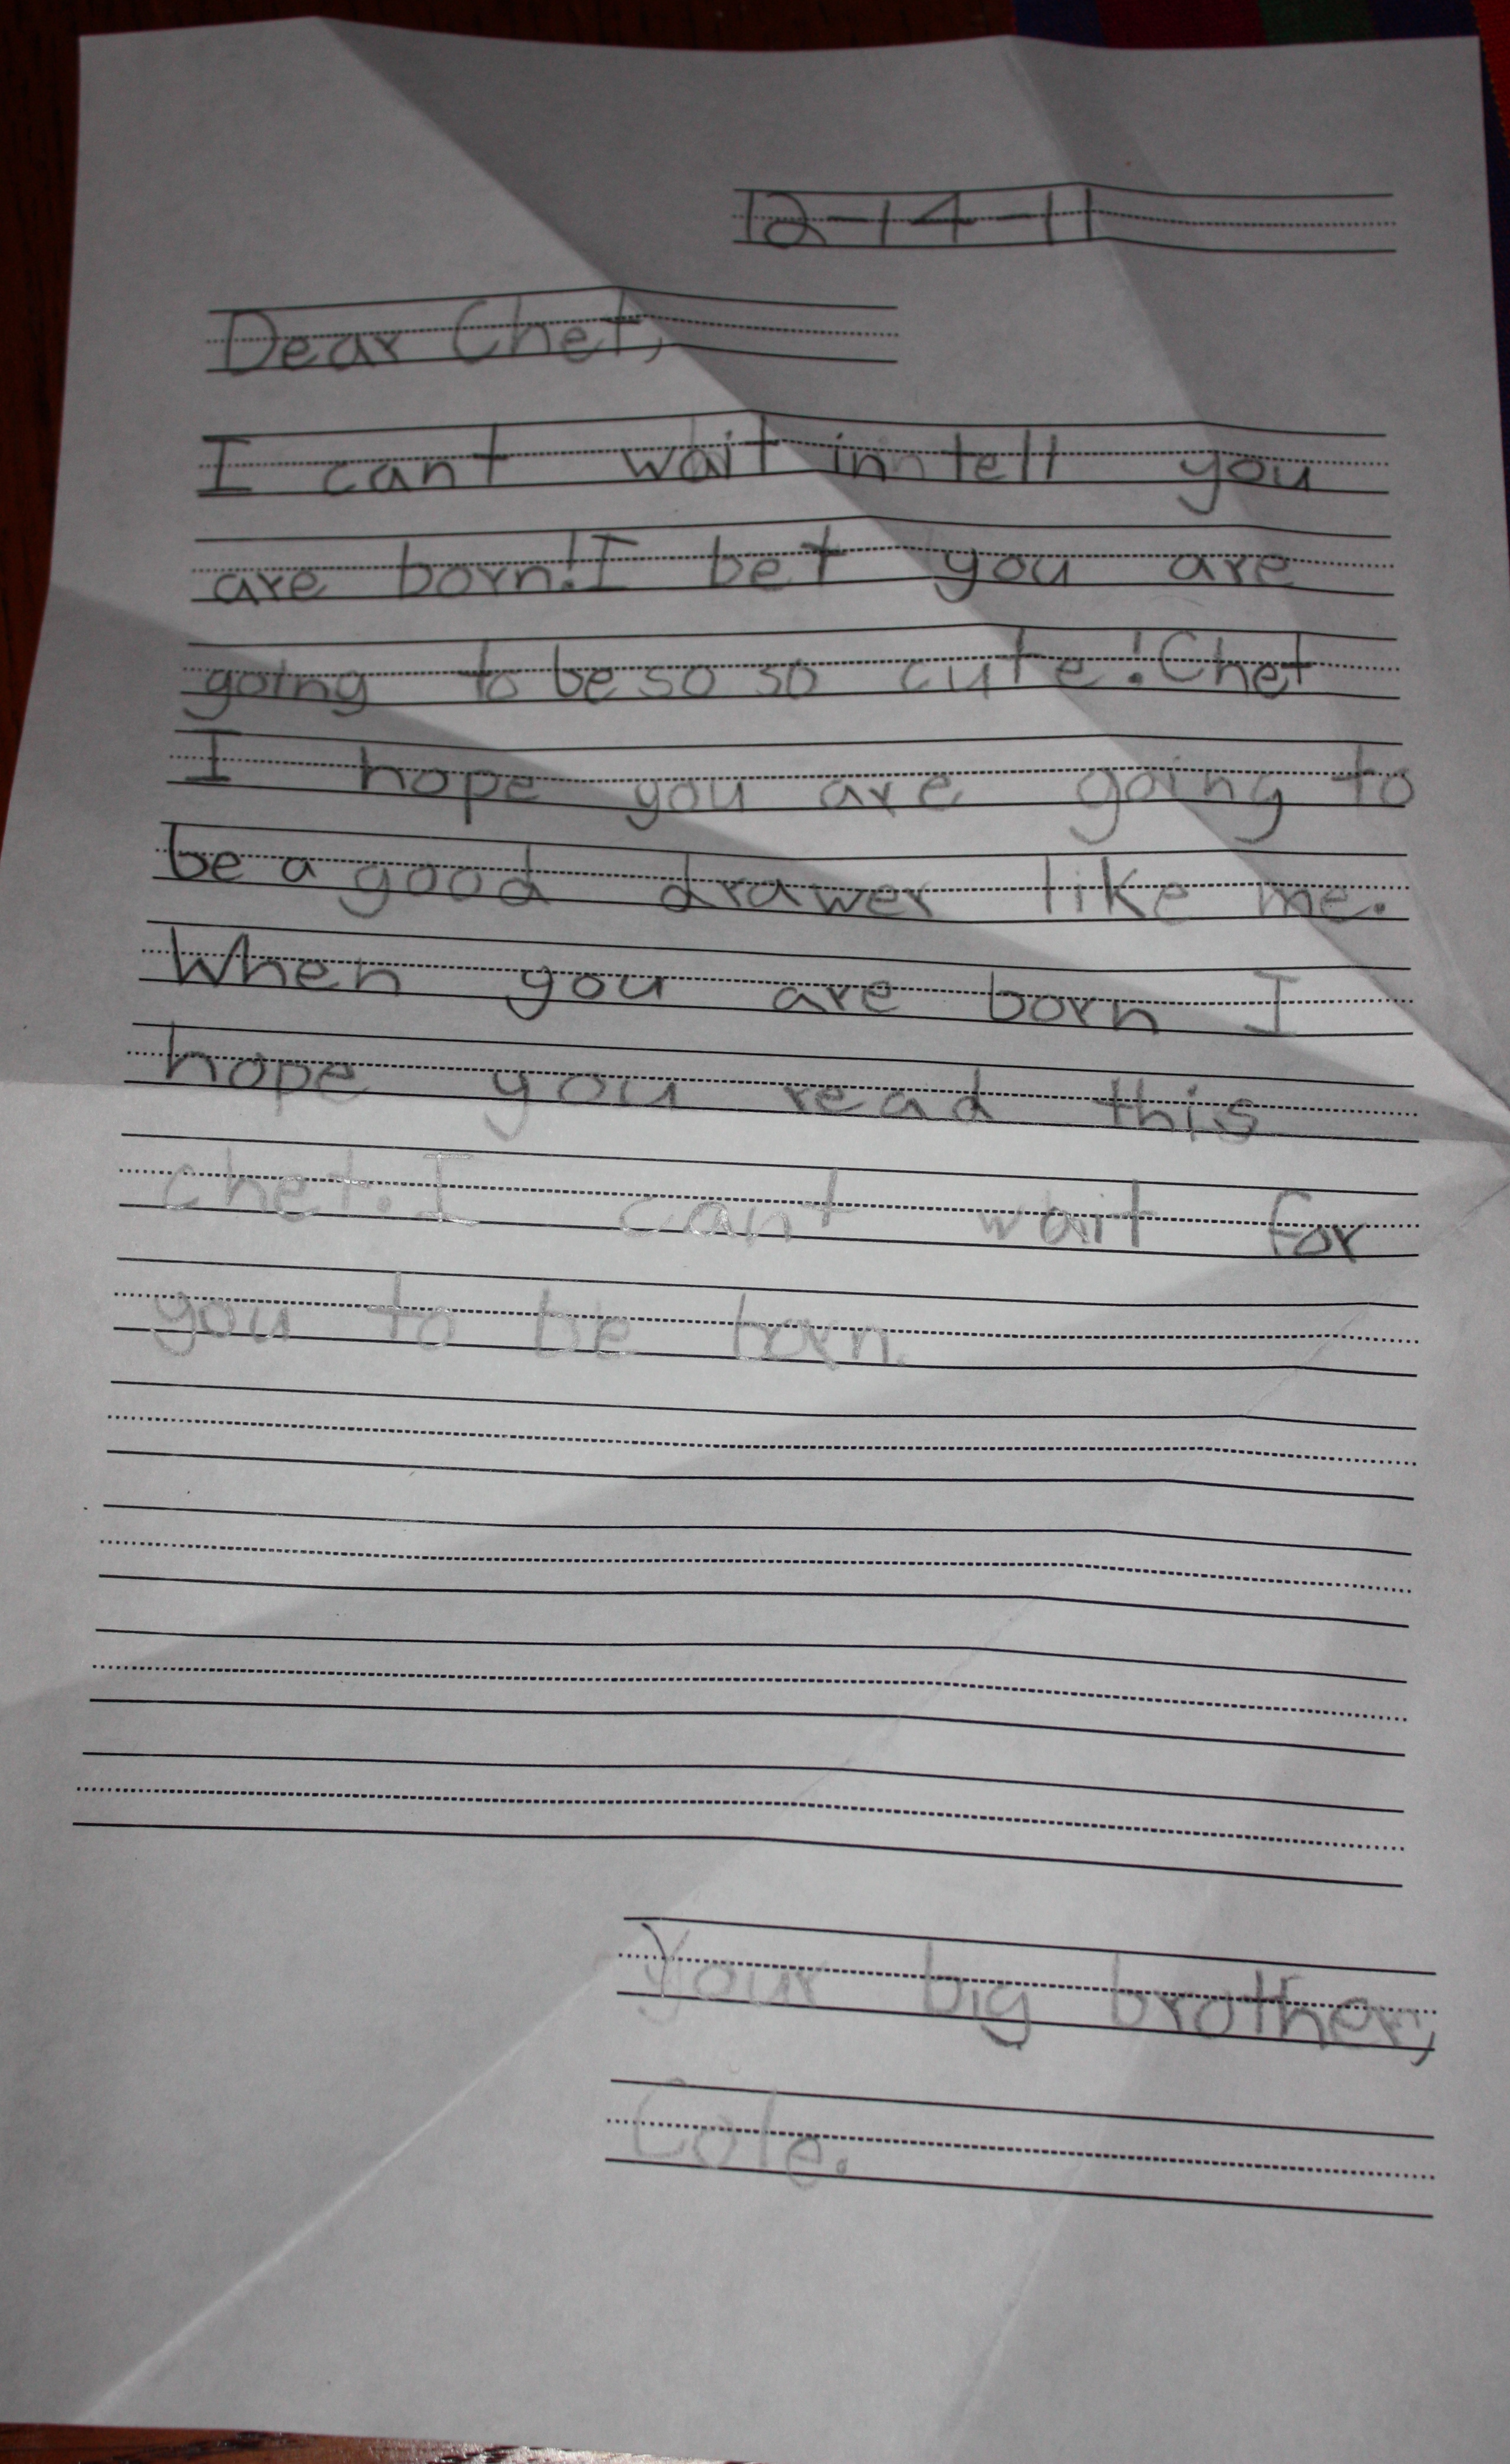 12-14-11
Dear Chet,
I cant wait inntell you
are born! I bet you are
going to be so so cute! Chet
I hope you are going to
be a good drawer like me.
When you are born I
hope you read this
chet. I cant wait for
you to be born.
Your big brother,
Cole.